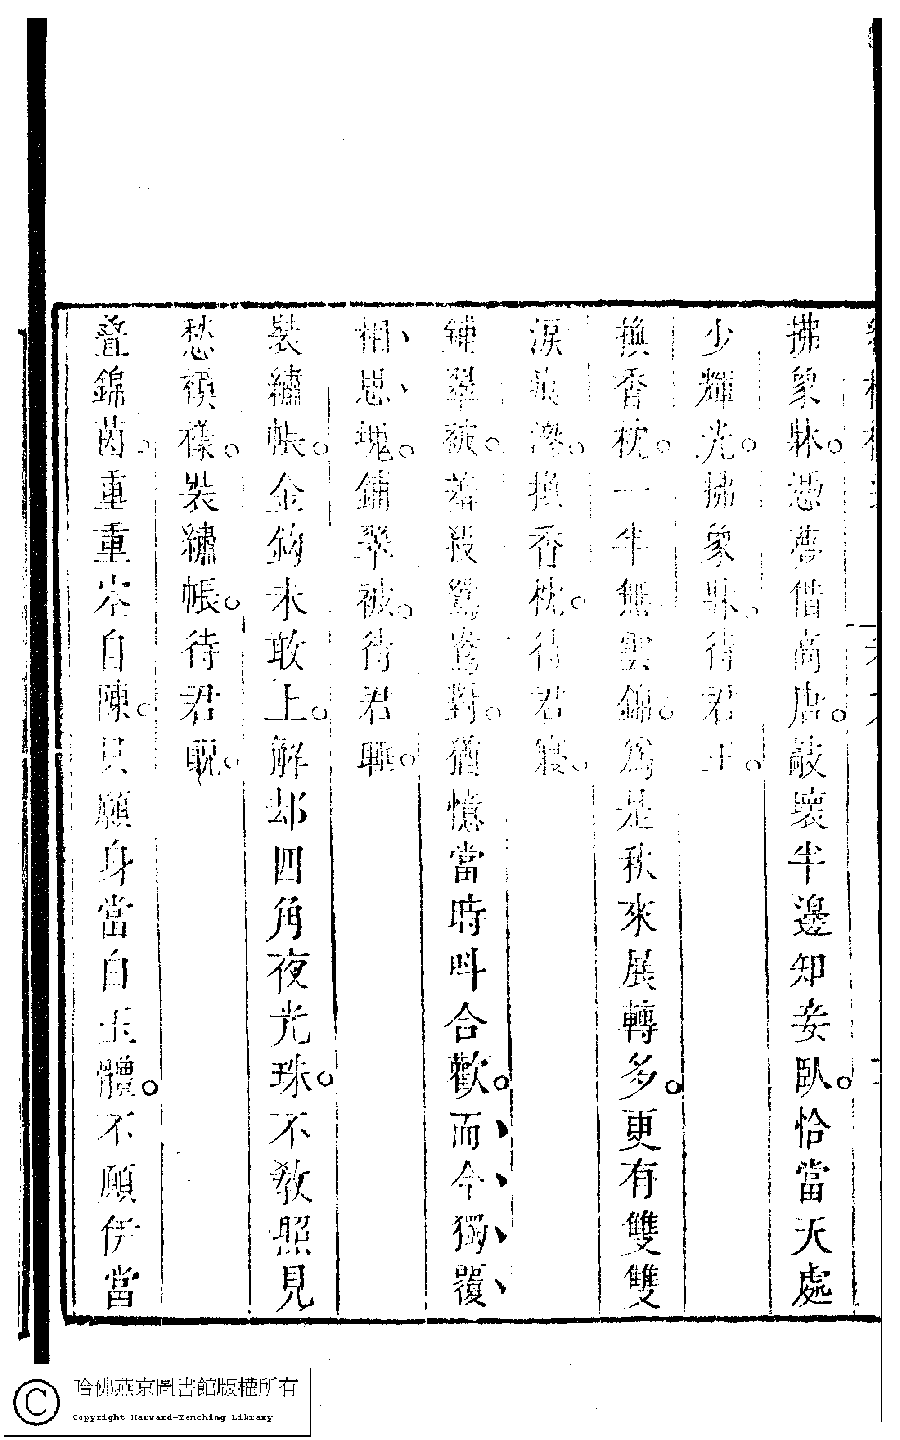 拂象牀。憑夢借高唐。敲壞半邊知妾臥。恰當天處
少輝光。拂象牀。待君王。
換香枕。一半無雲錦。為是秋來展轉多。更有雙雙
淚痕滲。換香枕。待君寢。
鋪翠被。羞殺鴛鴦對。猶憶當時呌合歡。而今獨覆
相思塊。鋪翠被。待君睡。
裝繡帳。金鈎未敢上。解却四角夜光珠。不敎照見
愁模樣。裝繡帳。待君貺。
疊錦茵。重重空自陳。只願身當白玉體。不願伊當
哈佛燕京圖書館版權所有
Copyright Harvard-Yenching Library